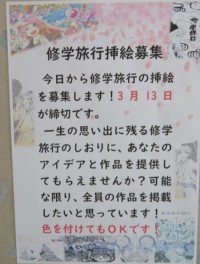 修学旅行挿絵募集
今日から修学旅行の挿絵
を募集します！３月１３日
が締切です。
一生の思い出に残る修学
旅行のしおりに、あなたの
アイデアと作品を提供し
てもらえませんか？可能
な限り、全員の作品を掲載
したいと思っています！
色を付けてもＯＫです！